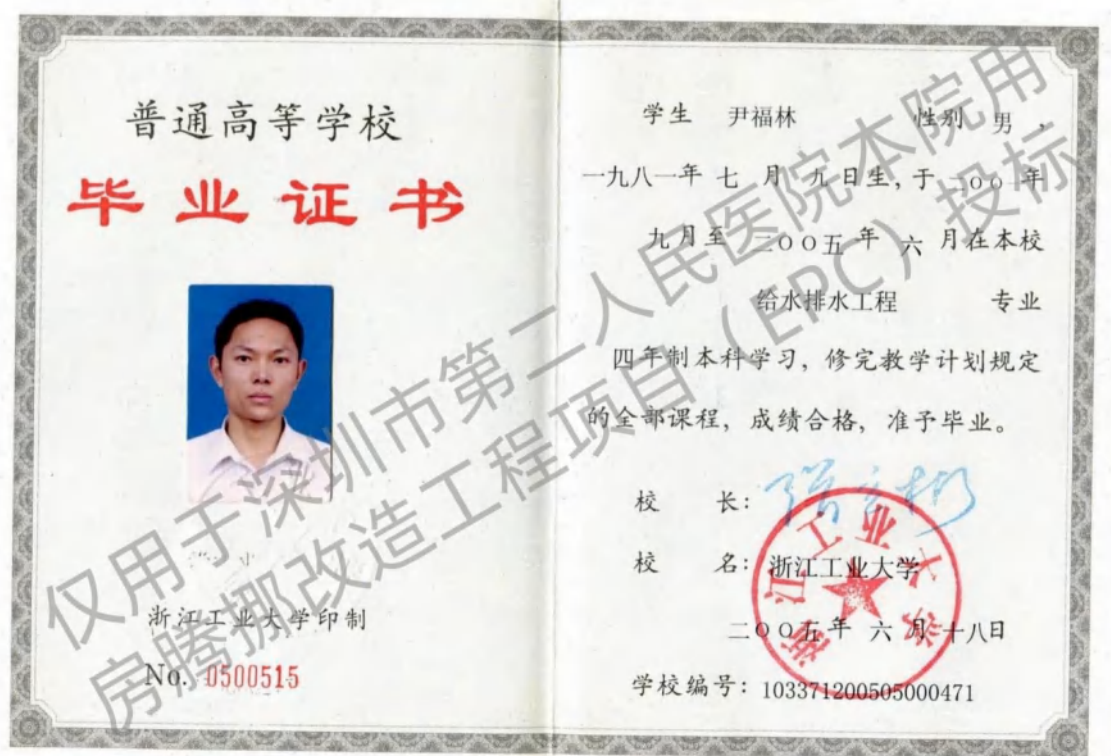 普通高等学校
毕业证书
浙江工业大学印制
No. 0500515
学生 尹福林 性别 男,
一九八一年 七 月 九 日生, 于 二〇〇一年
九月至 二〇〇五 年 六 月在本校
给水排水工程 专业
四年制本科学习, 修完教学计划规定
的全部课程, 成绩合格, 准予毕业。
校 长:
校 名: 浙江工业大学
二〇〇五年 六 月 十八日
学校编号: 103371200505000471
浙江工业大学
仅用于深圳市第二人民医院本院用
房腾挪改造工程项目(EPC)投标